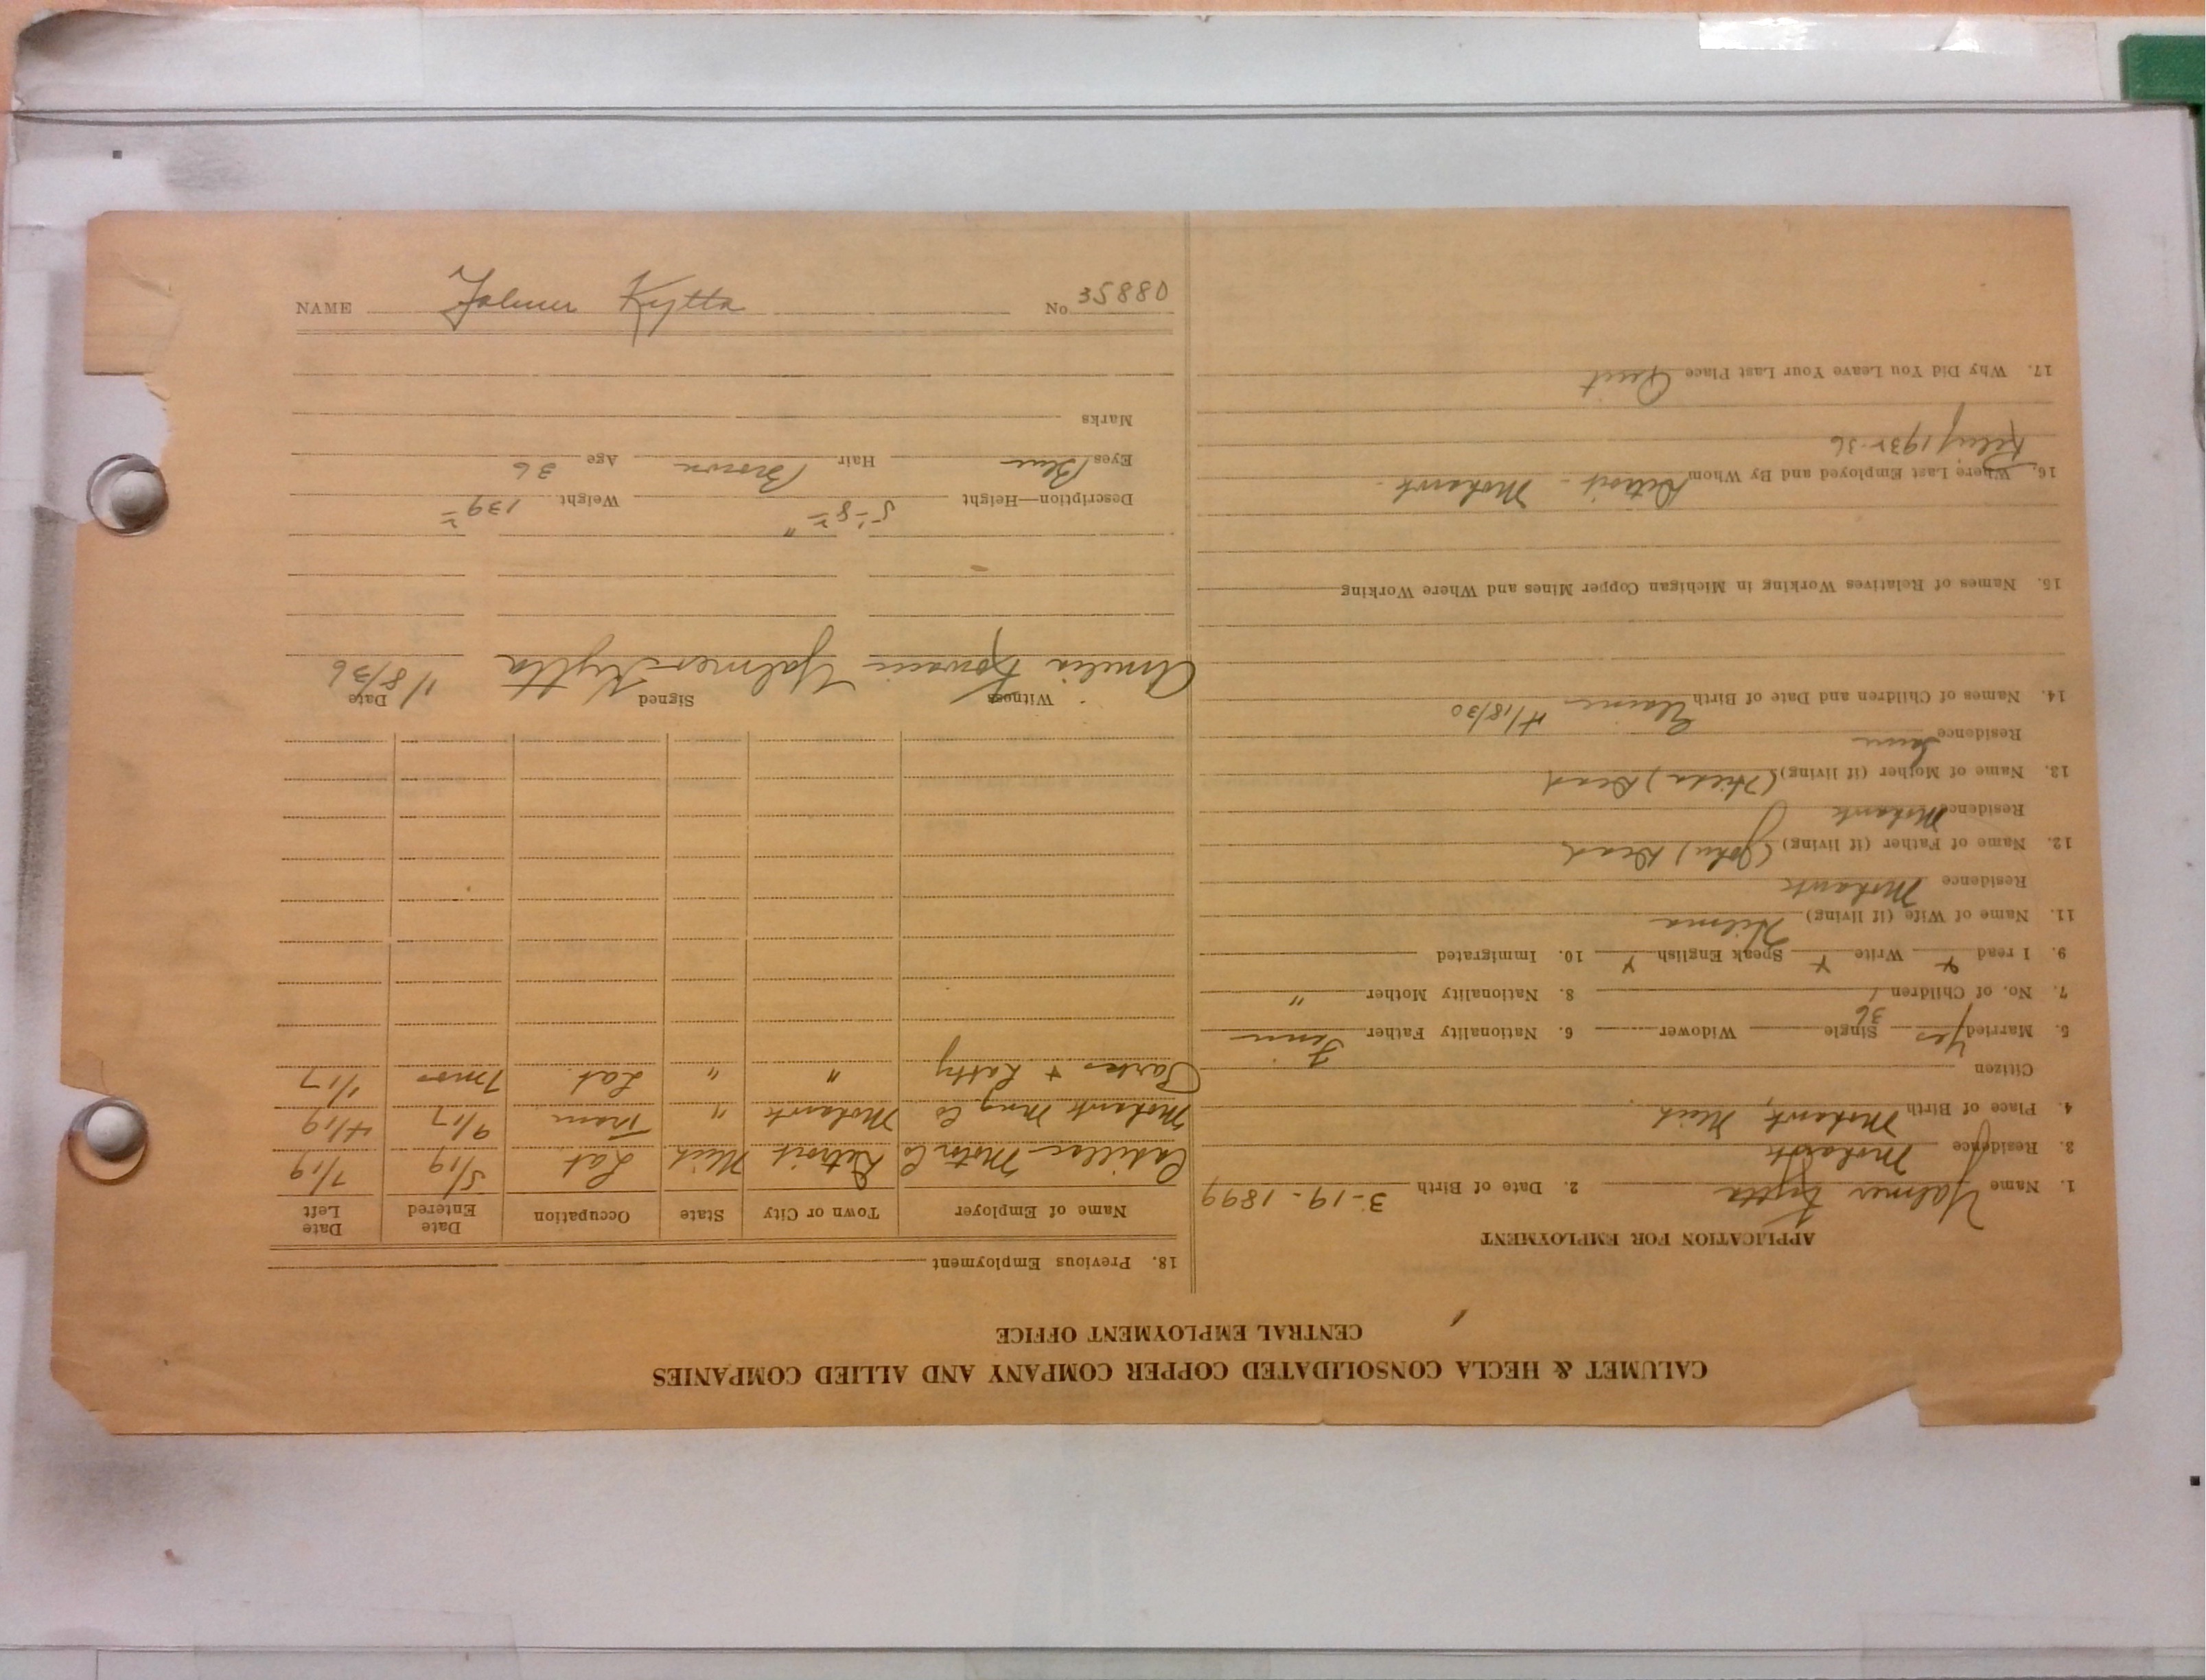 CALUMET & HECLA CONSOLIDATED COPPER COMPANY AND ALLIED COMPANIES
CENTRAL EMPLOYMENT OFFICE
APPLICATION FOR EMPLOYMENT
1. Name Yalmer Kytta 2. Date of Birth 3-19-1899
3. Residence Mohawk
4. Place of Birth Mohawk, Mich
Citizen
5. Married Yes Single 36 Widower 6. Nationality Father Finn
7. No. of Children 1 8. Nationality Mother "
9. I read Y Write Y Speak English Y 10. Immigrated
11. Name of Wife (if living) Hilma
Residence Mohawk
12. Name of Father (if living) (John) Dead
Residence Mohawk
13. Name of Mother (if living) (Hilda) Dead
Residence Same
14. Names of Children and Date of Birth Elaine 4/18/30
15. Names of Relatives Working in Michigan Copper Mines and Where Working
16. Where Last Employed and By Whom Detroit - Mohawk -
1935-36
17. Why Did You Leave Your Last Place Quit
18. Previous Employment
Name of Employer Town or City State Occupation Date Entered Date Left
Cadillac Motor Co Detroit Mich Lab 5/19 7/19
Mohawk Mng Co Mohawk " Tram 9/17 4/19
+ " " Lab. 7 mos 1/17
Witness Signed Date
Amelia Yalmer Kytta 1/8/36
Description—Height 5'-8" Weight 139
Eyes Blue Hair Brown Age 36
Marks
NAME Jalmer Kytta No 35880